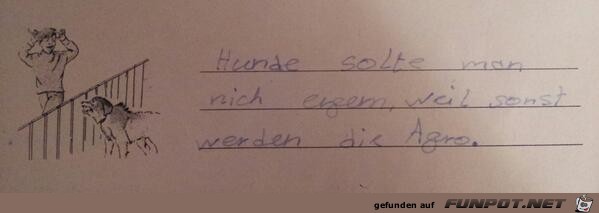 Hunde solte man
nich ergern, weil sonst
werden die Agro.
gefunden auf FUNPOT.NET